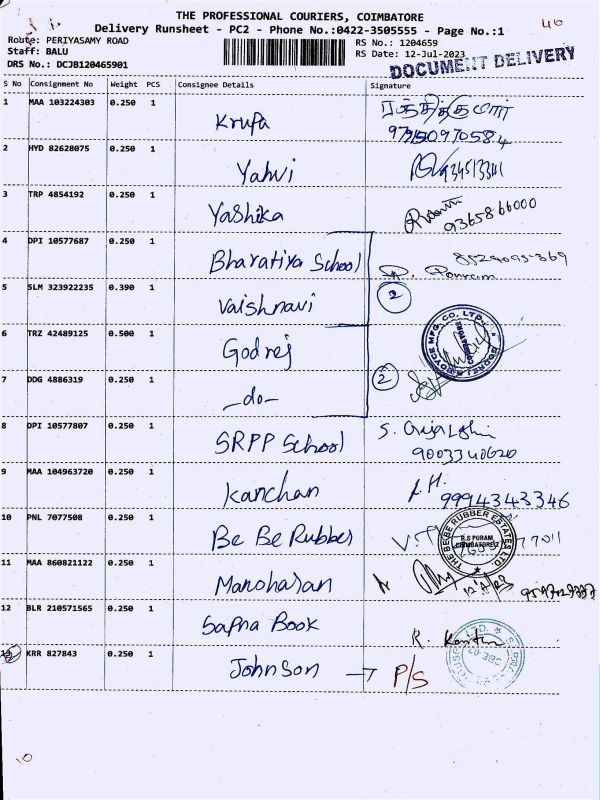 46
THE PROFESSIONAL COURIERS, COIMBATORE
Delivery Runsheet - PC2 - Phone No.:0422-3505555 - Page No.:1
Route: PERIYASAMY ROAD
RS No.: 1204659
Staff: BALU
RS Date: 12-Jul-2023
DRS No.: DCJB120465901
DOCUMENT DELIVERY
S No Consignment No Weight PCS Consignee Details Signature
1 MAA 103224303 0.250 1 Krupa ரஞ்சித்குமார்
2 HYD 82628075 0.250 1 Yahvi
3 TRP 4854192 0.250 1 Yashika 9365866000
4 DPI 10577687 0.250 1 Bharatiya School 8524095-369
5 SLM 323922235 0.390 1 Vaishnavi 2
6 TRZ 42489125 0.500 1 Godrej
7 DDG 4886319 0.250 1 -do- 2
8 DPI 10577807 0.250 1 SRPP School
9003340620
9 MAA 104963720 0.250 1 Kanchan
9994343346
10 PNL 7077508 0.250 1 Be Be Rubber THE BE BE RUBBER ESTATES LTD.
R.S PURAM
COIMBATORE-2
11 MAA 860821122 0.250 1 Manoharan
12 BLR 210571565 0.250 1 Sapna Book
13 KRR 827843 0.250 1 Johnson → P/S